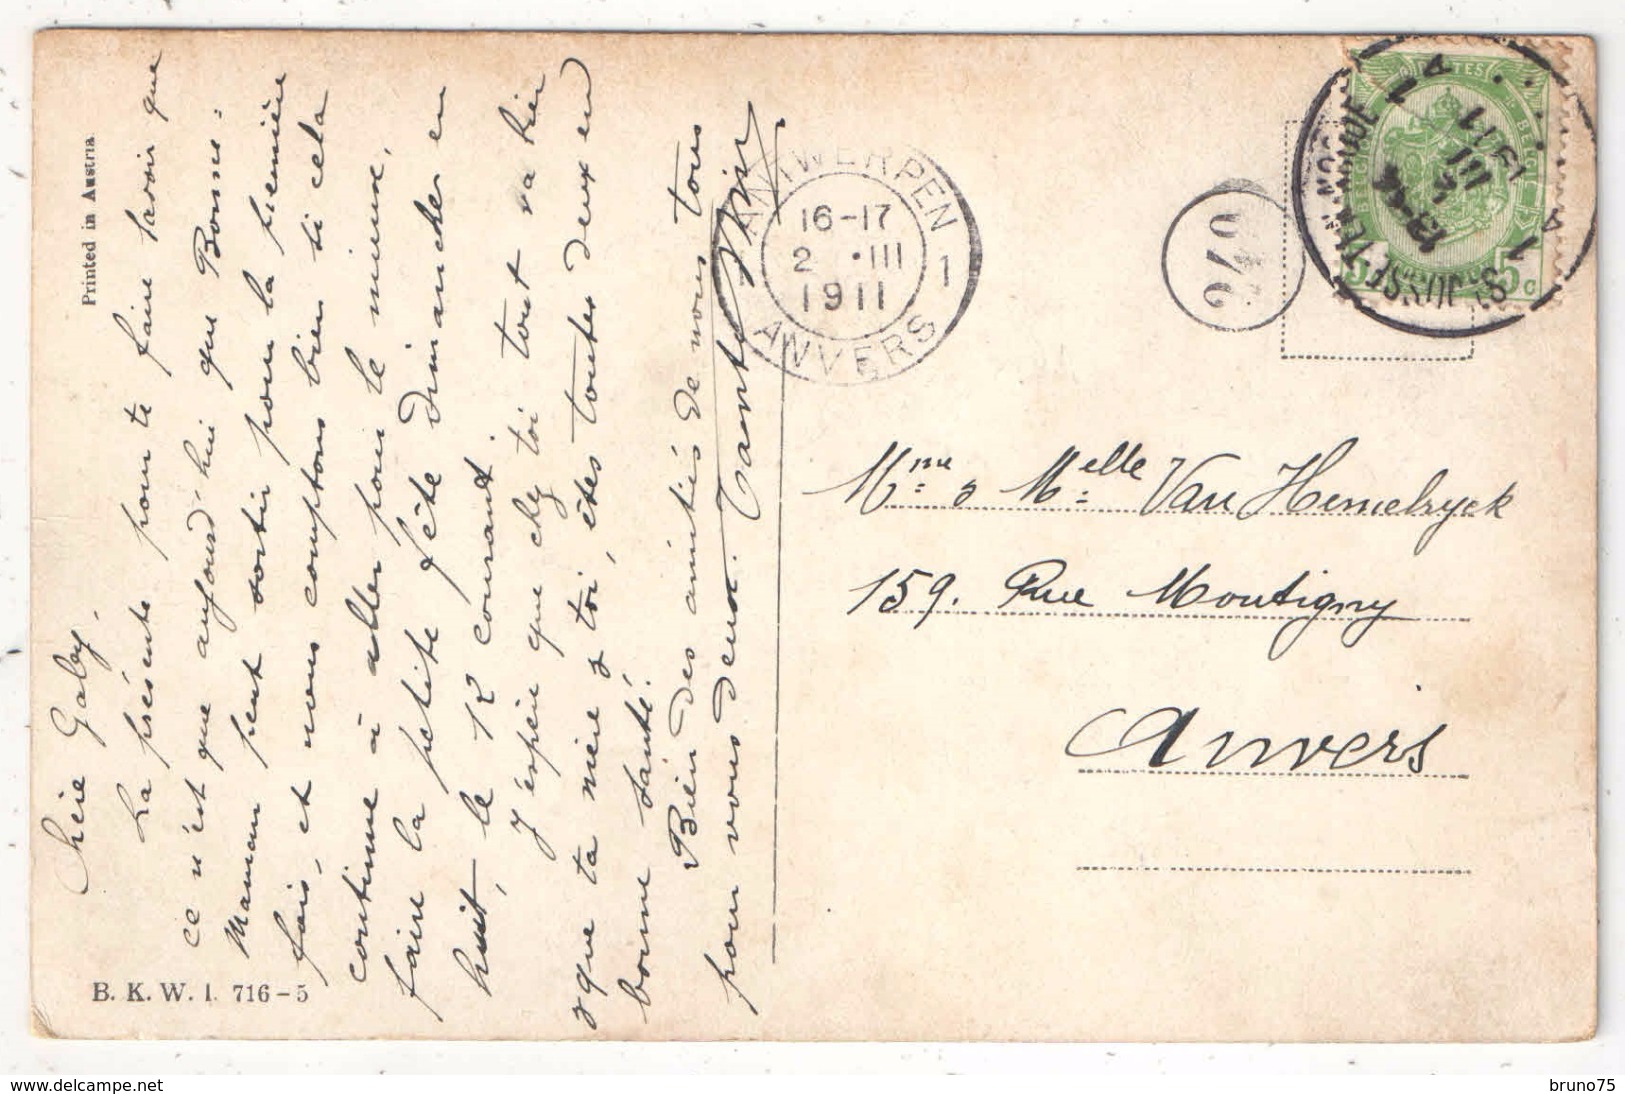 Printed in Austria
Chère Gaby.
La présente pour te faire savoir que
ce n'est que aujourd'hui que Bonne-
Maman peut sortir pour la première
fois, et nous comptons bien si cela
continue à aller pour le mieux,
faire la petite fête dimanche en
huit, le 12 courant.
J'espère que chez toi tout va bien
& que ta mère & toi, êtes toutes deux en
bonne santé.
Bien des amitiés de nous tous
pour vous deux. Tante
B. K. W. I. 716-5
ANTWERPEN 1
16-17
2 ·III
1911
ANVERS
POSTES
BELGIQUE
BELGIË
5c
ST JOOSSE-TEN-NOODE 1 A
III
1911
1 A
Mme & Melle Van Hemelryck
159. Rue Montigny
Anvers
www.delcampe.net
bruno75